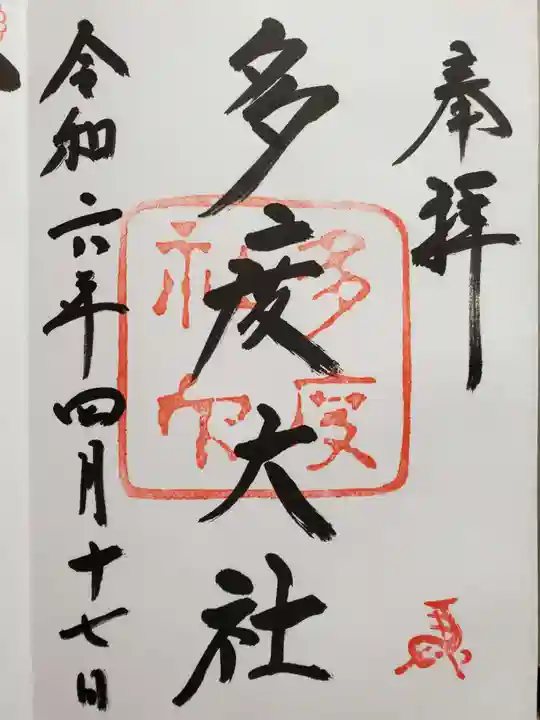 奉拝
多度大社
令和六年四月十七日
多度
神社
馬